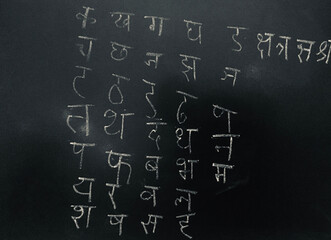 क ख ग घ ङ क्ष त्र ज्ञ श्र
च छ ज झ ञ
ट ठ ड ढ ण
त थ द ध न
प फ ब भ म
य र व ल
श ष स ह